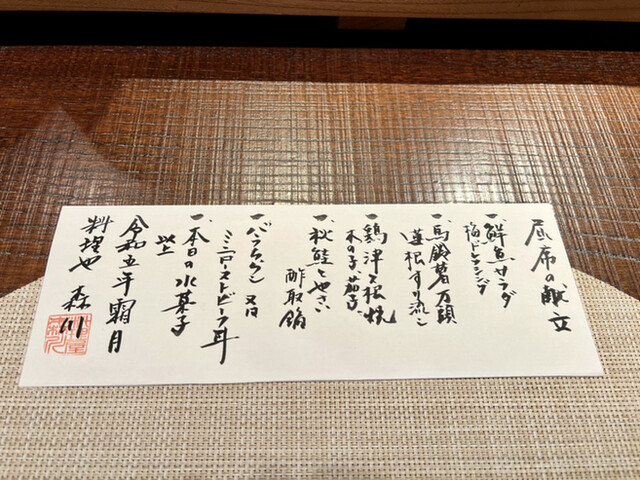 昼席の献立
一、鮮魚サラダ
梅ドレッシング
一、馬鈴薯万頭
蓮根すり流し
一、鶏津久根焼
木の子、茄子、
一、秋鮭とやさい
酢取鍋
一、バラちらし 又は
ミニローストビーフ丼
一、本日の水菓子
以上
令和五年 霜月
料理や 森川